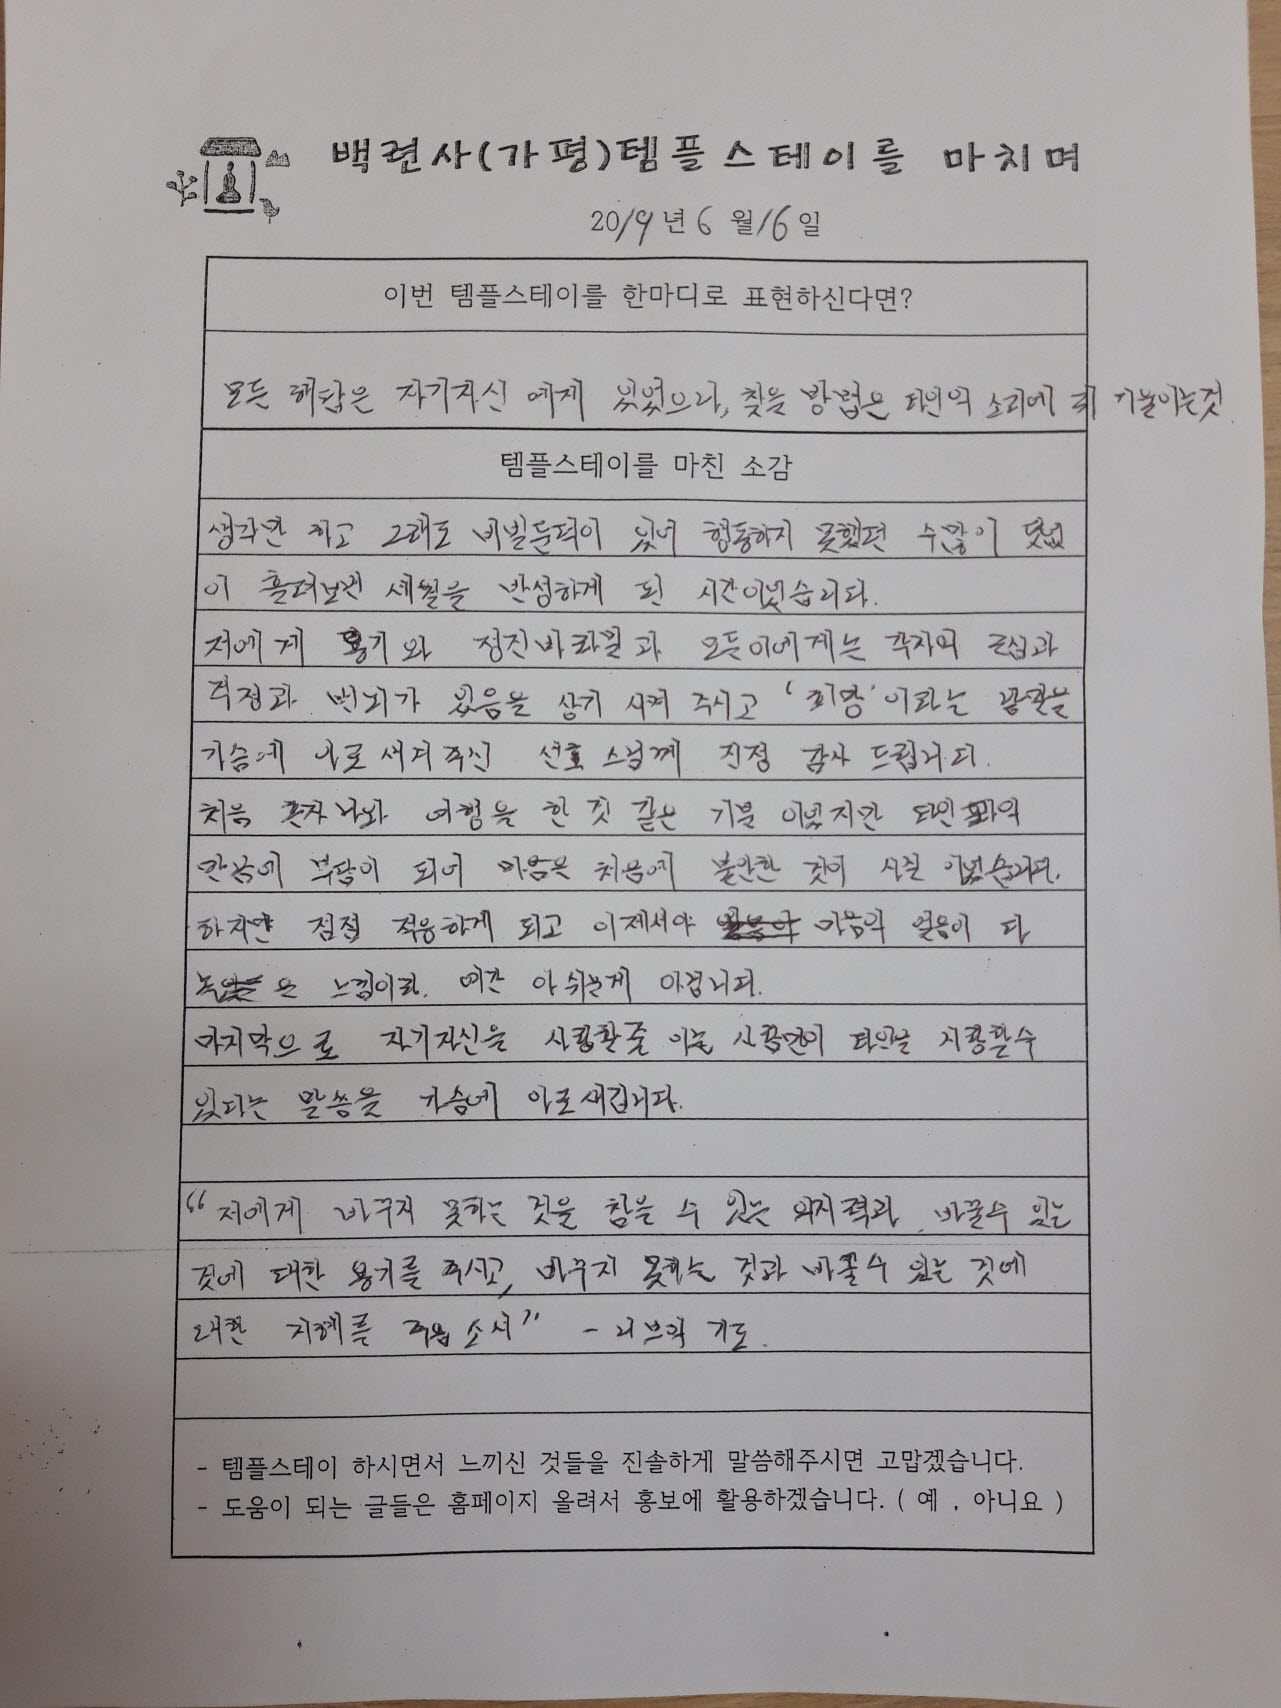 백련사(가평)템플스테이를 마치며
2019년 6월 16일
이번 템플스테이를 한마디로 표현하신다면?
모든 해답은 자기자신 에게 있었으나, 찾을 방법은 타인의 소리에 귀 기울이는것
템플스테이를 마친 소감
생각만 하고 그래도 비빌둔턱이 있어 행동하지 못했던 수많이 덧없
이 흘려보낸 세월을 반성하게 된 시간이었습니다.
저에게 용기와 정진바라밀과 모든이에게는 각자의 근심과
걱정과 번뇌가 있음을 상기 시켜 주시고 '희망'이라는 낱말을
가슴에 아로새겨주신 선효 스님께 진정 감사 드립니다.
처음 혼자나와 여행을 한 것 같은 기분 이었지만 타인과의
만남에 부담이 되어 마음은 처음에 불안한 것이 사실 이었습니다.
하지만 점점 적응하게 되고 이제서야 마음의 얼음이 다
녹은 느낌이라. 약간 아쉬운게 아쉽니다.
마지막으로 자기자신을 사랑할줄 아는 사람만이 타인을 사랑할수
있다는 말씀을 가슴에 아로새깁니다.
“저에게 바꾸지 못하는 것을 참을 수 있는 의지력과, 바꿀수 있는
것에 대한 용기를 주시고, 바꾸지 못하는 것과 바꿀수 있는 것에
대한 지혜를 주옵소서” - 니브의 기도.
- 템플스테이 하시면서 느끼신 것들을 진솔하게 말씀해주시면 고맙겠습니다.
- 도움이 되는 글들은 홈페이지 올려서 홍보에 활용하겠습니다. ( 예 , 아니요 )